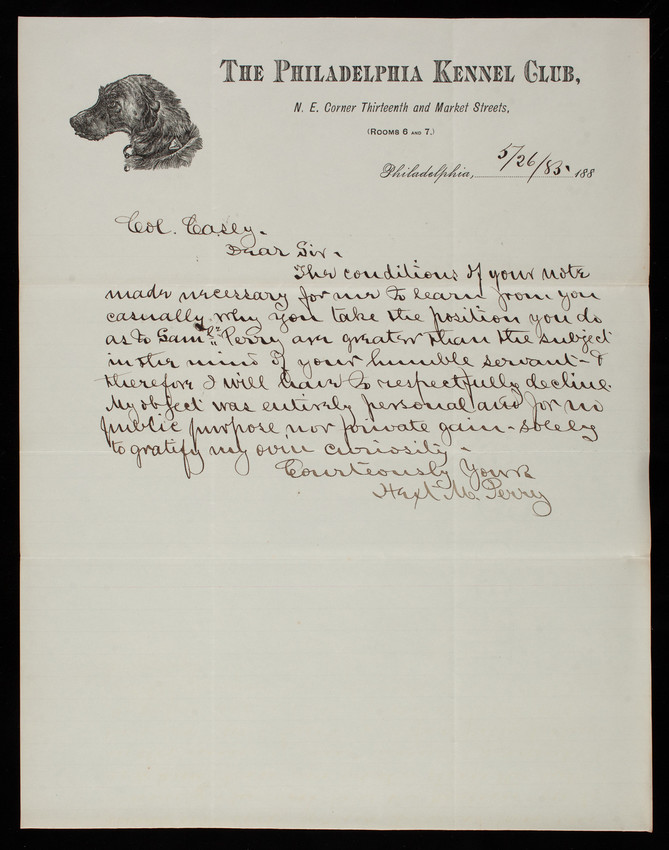 THE PHILADELPHIA KENNEL CLUB,
N. E. Corner Thirteenth and Market Streets,
(ROOMS 6 AND 7.)
Philadelphia, 5/26/85. 188
Col. Casey.
Dear Sir.
The conditions of your note
made necessary for me to learn from you
casually why you take the position you do
as to Saml. Perry are greater than the subject
in the mind of your humble servant - &
therefore I will have to respectfully decline.
My object was entirely personal and for no
public purpose, nor private gain - solely
to gratify my own curiosity.
Courteously Yours
Hext M. Perry